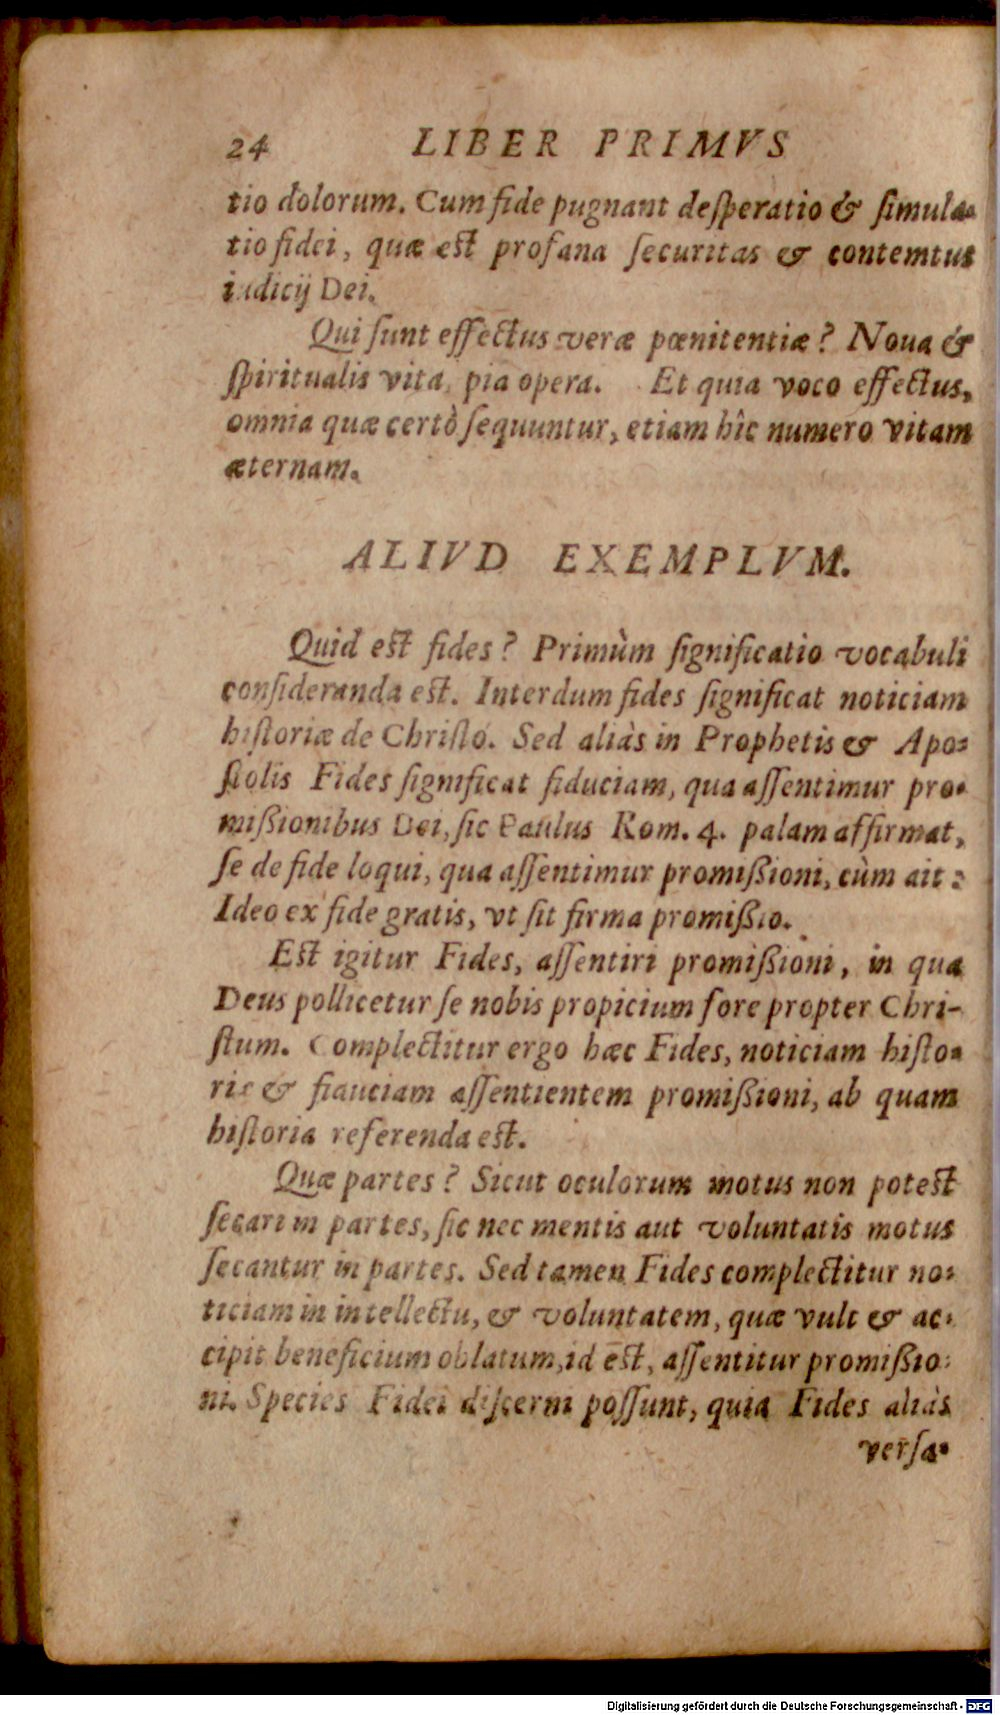 24 LIBER PRIMVS
tio dolorum. Cum fide pugnant desperatio & simula-
tio fidei, quæ est profana securitas & contemtus
iudicij Dei.
Qui sunt effectus veræ pœnitentiæ? Noua &
spiritualis vita, pia opera. Et quia voco effectus,
omnia quæ certò sequuntur, etiam hîc numero vitam
æternam.
ALIVD EXEMPLVM.
Quid est fides? Primùm significatio vocabuli
consideranda est. Interdum fides significat noticiam
historiæ de Christo. Sed aliàs in Prophetis & Apo-
stolis Fides significat fiduciam, qua assentimur pro-
mißionibus Dei, sic Paulus Rom. 4. palam affirmat,
se de fide loqui, qua assentimur promißioni, cùm ait:
Ideo ex fide gratis, vt sit firma promißio.
Est igitur Fides, assentiri promißioni, in qua
Deus pollicetur se nobis propicium fore propter Chri-
stum. Complectitur ergo hæc Fides, noticiam histo-
riæ & fiduciam assentientem promißioni, ab quam
historia referenda est.
Quæ partes? Sicut oculorum motus non potest
secari in partes, sic nec mentis aut voluntatis motus
secantur in partes. Sed tamen Fides complectitur no-
ticiam in intellectu, & voluntatem, quæ vult & ac-
cipit beneficium oblatum, id est, assentitur promißio-
ni. Species Fidei discerni possunt, quia Fides aliàs
versa-
Digitalisierung gefördert durch die Deutsche Forschungsgemeinschaft - DFG